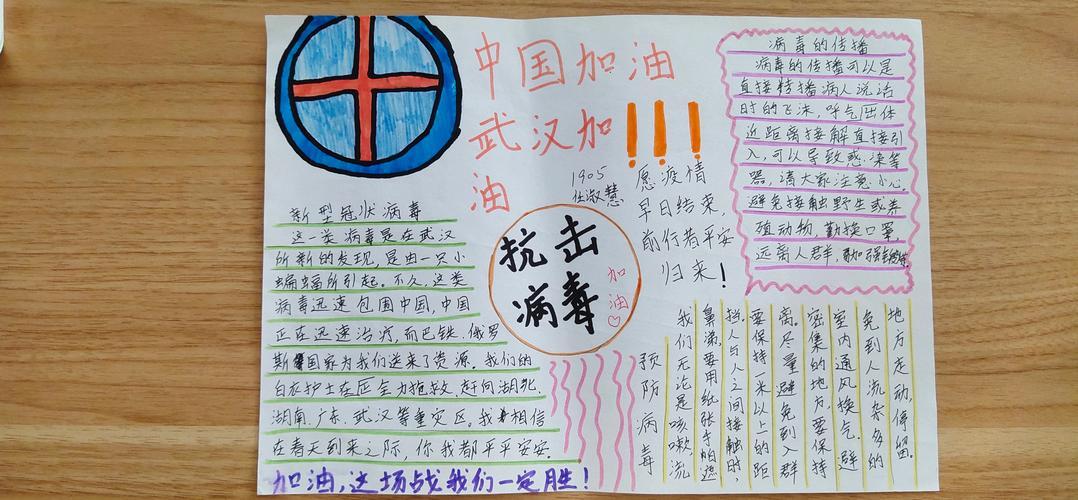 中国加油
武汉加
油
!!!
1905
任淑慧
愿疫情
早日结束,
前行者平安
归来!
新型冠状病毒
这一类病毒是在武汉
所新的发现,是由一只小
蝙蝠所引起。不久,这类
病毒迅速包围中国,中国
正在迅速治疗,而巴铁、俄罗
斯国家为我们送来了资源。我们的
白衣护士在全力抢救,赶向湖北、
湖南、广东、武汉等重灾区。我相信
在春天到来之际,你我都平平安安。
加油,这场战我们一定胜!
抗击
病毒
加
油♡
病毒的传播
病毒的传播可以是
直接传播病人说话
时的飞沫,呼气体
近距离接解直接引
入,可以导致感染等
器,请大家注意小心,
避免接触野生或养
殖动物,勤换口罩,
远离人群,加强锻炼
预防病毒
我们无论是咳嗽、流
鼻涕,要用纸张手帕遮
挡。人与人之间接触时,
要保持一米以上的距
离。尽量避免到入群
密集的地方,要保持
室内通风换气。避
免到人流杂多的
地方走动,停留。